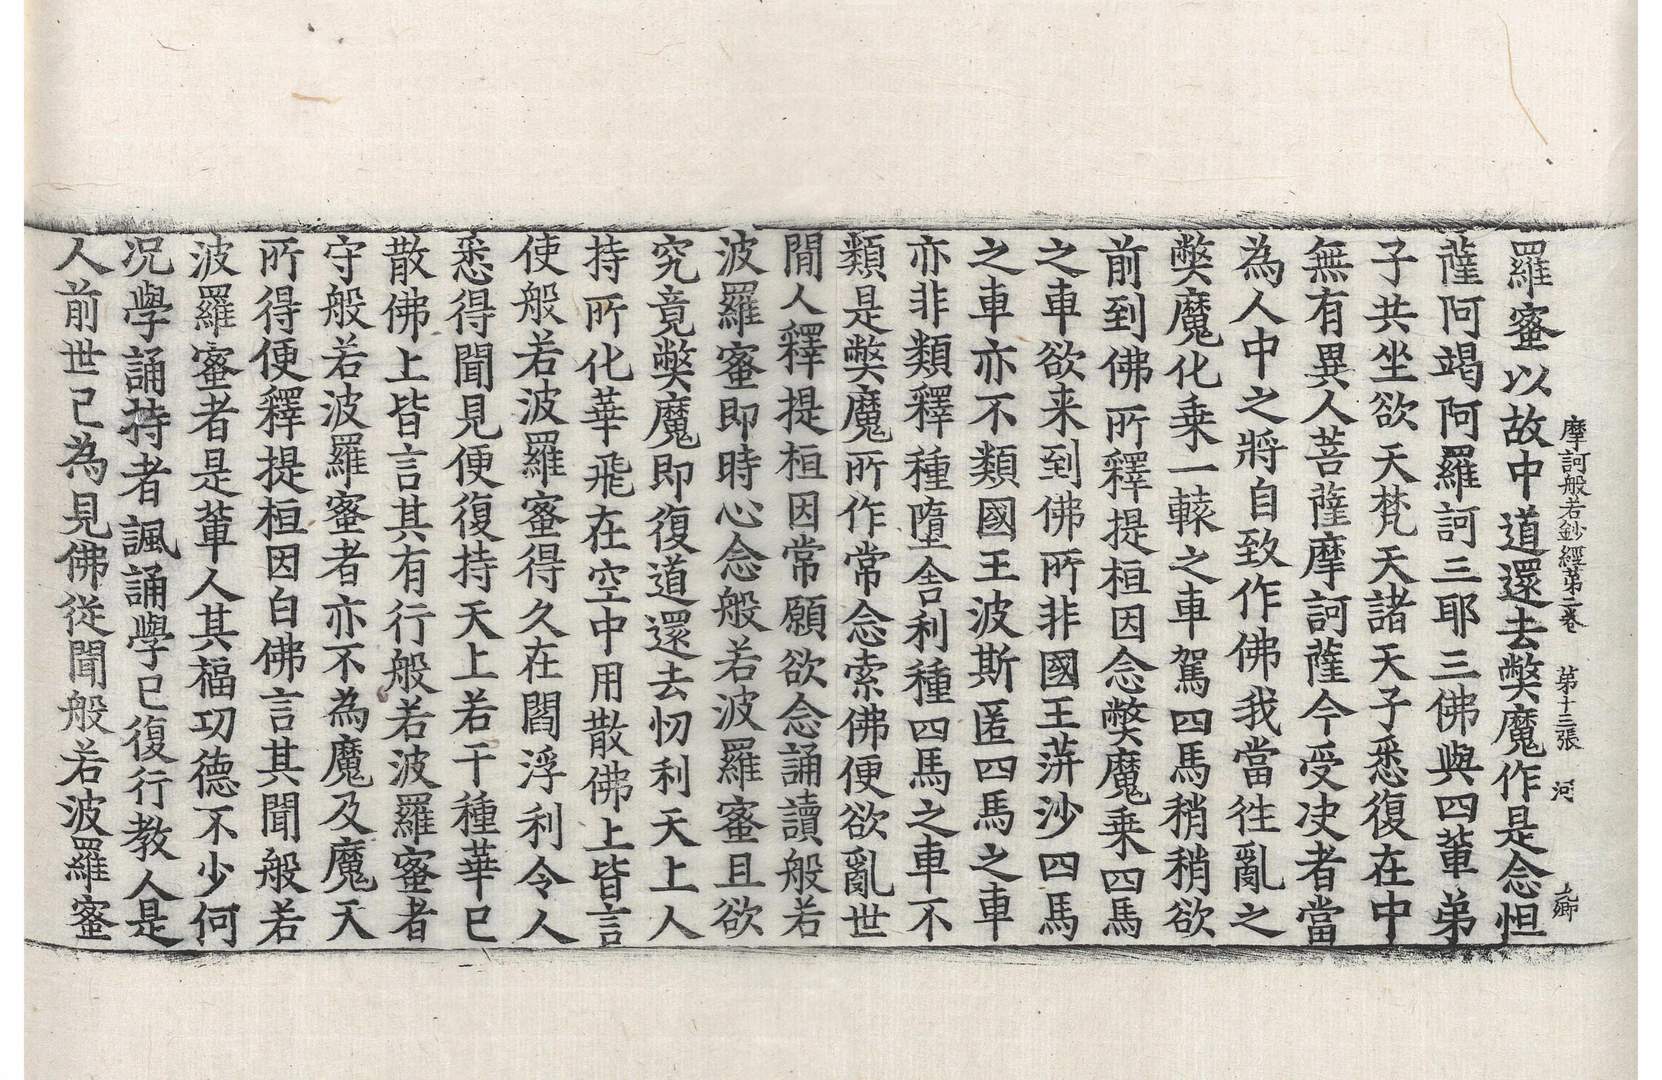 摩訶般若鈔經第二卷　第十三張　河
羅蜜以故中道還去弊魔作是念怛
薩阿竭阿羅訶三耶三佛與四輩弟
子共坐欲天梵天諸天子悉復在中
無有異人菩薩摩訶薩今受决者當
為人中之將自致作佛我當徃亂之
弊魔化乗一轅之車駕四馬稍稍欲
前到佛所釋提桓因念弊魔乗四馬
之車欲来到佛所非國王蓱沙四馬
之車亦不類國王波斯匿四馬之車
亦非類釋種墮舎利種四馬之車不
類是弊魔所作常念索佛便欲亂世
間人釋提桓因常願欲念誦讀般若
波羅蜜即時心念般若波羅蜜且欲
究竟弊魔即復道還去忉利天上人
持所化華飛在空中用散佛上皆言
使般若波羅蜜得久在閻浮利令人
悉得聞見便復持天上若干種華已
散佛上皆言其有行般若波羅蜜者
守般若波羅蜜者亦不為魔及魔天
所得便釋提桓因白佛言其聞般若
波羅蜜者是輩人其福功德不少何
况學誦持者諷誦學已復行教人是
人前世已為見佛從聞般若波羅蜜